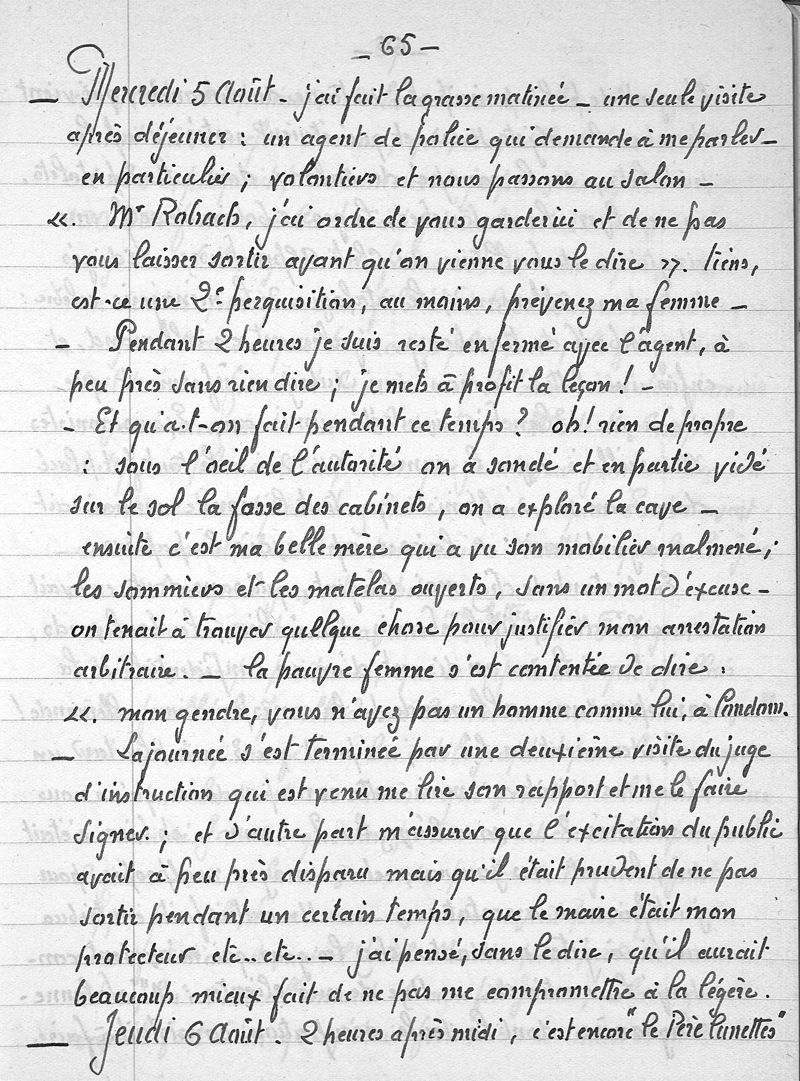 _ 65 _
_ Mercredi 5 Août. j'ai fait la grasse matinée _ une seule visite
après déjeuner : un agent de police qui demande à me parler _
en particulier ; volontiers et nous passons au salon _
«. Mr Robach, j'ai ordre de vous garder ici et de ne pas
vous laisser sortir avant qu'on vienne vous le dire ». tiens,
est-ce une 2e perquisition, au moins, prévenez ma femme _
_ Pendant 2 heures je suis resté enfermé avec l'agent, à
peu près sans rien dire ; je mets à profit la leçon ! _
_ Et qu'a-t-on fait pendant ce temps ? oh ! rien de propre
: sous l'oeil de l'autorité on a sondé et en partie vidé
sur le sol la fosse des cabinets, on a exploré la cave _
ensuite c'est ma belle mère qui a vu son mobilier malmené ;
les sommiers et les matelas ouverts, sans un mot d'excuse _
on tenait à trouver quelque chose pour justifier mon arrestation
arbitraire. _ la pauvre femme s'est contentée de dire :
«. mon gendre, vous n'avez pas un homme comme lui, à Condom.
_ La journée s'est terminée par une deuxième visite du juge
d'instruction qui est venu me lire son rapport et me le faire
signer. ; et d'autre part m'assurer que l'excitation du public
avait à peu près disparu mais qu'il était prudent de ne pas
sortir pendant un certain temps, que le maire était mon
protecteur etc.. etc.. _ j'ai pensé, sans le dire, qu'il aurait
beaucoup mieux fait de ne pas me compromettre à la légère.
_ Jeudi 6 Août. 2 heures après midi, c'est encore "le Père lunettes"